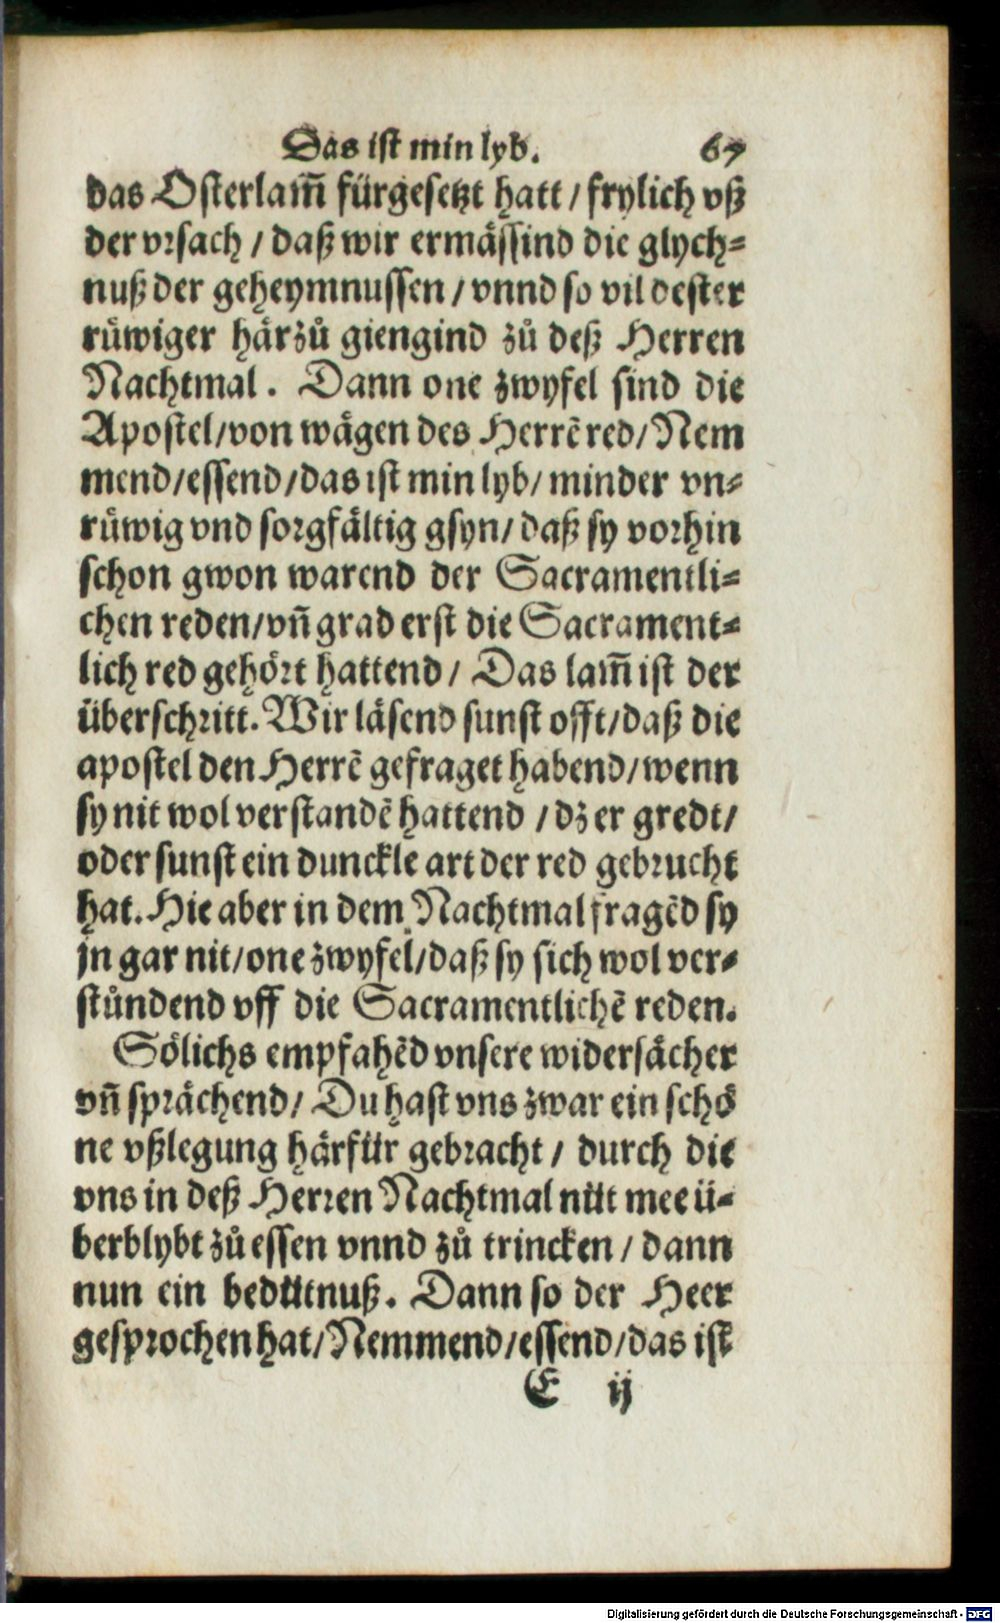 Das ist min lyb. 67
das Osterlam̄ fürgesetzt hatt / frylich vß
der vrsach / daß wir ermässind die glych⸗
nuß der geheymnussen / vnnd so vil dester
rüwiger härzů giengind zů deß Herren
Nachtmal. Dann one zwyfel sind die
Apostel / von wägen des Herrẽ red / Nem
mend / essend / das ist min lyb / minder vn⸗
rüwig vnd sorgfältig gsyn / daß sy vorhin
schon gwon warend der Sacramentli⸗
chen reden / vn̄ grad erst die Sacrament⸗
lich red gehört hattend / Das lam̄ ist der
überschritt. Wir läsend sunst offt / daß die
apostel den Herrẽ gefraget habend / wenn
sy nit wol verstandẽ hattend / dz er gredt /
oder sunst ein dunckle art der red gebrucht
hat. Hie aber in dem Nachtmal fragẽd sy
jn gar nit / one zwyfel / daß sy sich wol ver⸗
stůndend vff die Sacramentlichẽ reden.
Sölichs empfahẽd vnsere widersächer
vn̄ sprächend / Du hast vns zwar ein schö
ne vßlegung härfür gebracht / durch die
vns in deß Herren Nachtmal nüt mee ü⸗
berblybt zů essen vnnd zů trincken / dann
nun ein bedütnuß. Dann so der Heer
gesprochen hat / Nemmend / essend / das ist
E ij
Digitalisierung gefördert durch die Deutsche Forschungsgemeinschaft - DFG